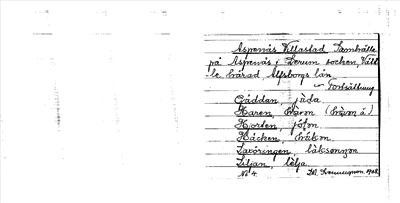 Aspenäs Villastad Samhälle
på Aspenäs i Lerum socken, Vätt-
le härad Älfsborgs län.
Fortsättning
Gäddan, jäda
Haren, haron
Horten,
Häcken, häkan.
Laxöringen, laksongon
Liljan, lelja
No 4 1928